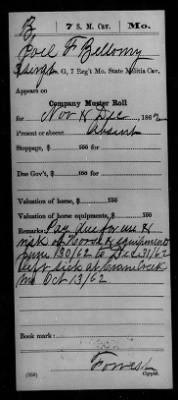 B 7 S. M. Cav. Mo.
Joel F Bellomy
Sergt Co. G, 7 Reg't Mo. State Militia Cav.
Appears on
Company Muster Roll
for Nov & Dec, 1862
Present or absent Absent
Stoppage, $ 100 for
Due Gov't, $ 100 for
Valuation of horse, $ 100
Valuation of horse equipments, $ 100
Remarks: Pay due for use &
risk of horse & equipments
from 30/62 to Dec 31/62
left sick at
Mo Oct 13/62
Book mark:
Forrest
(358) Copyist.